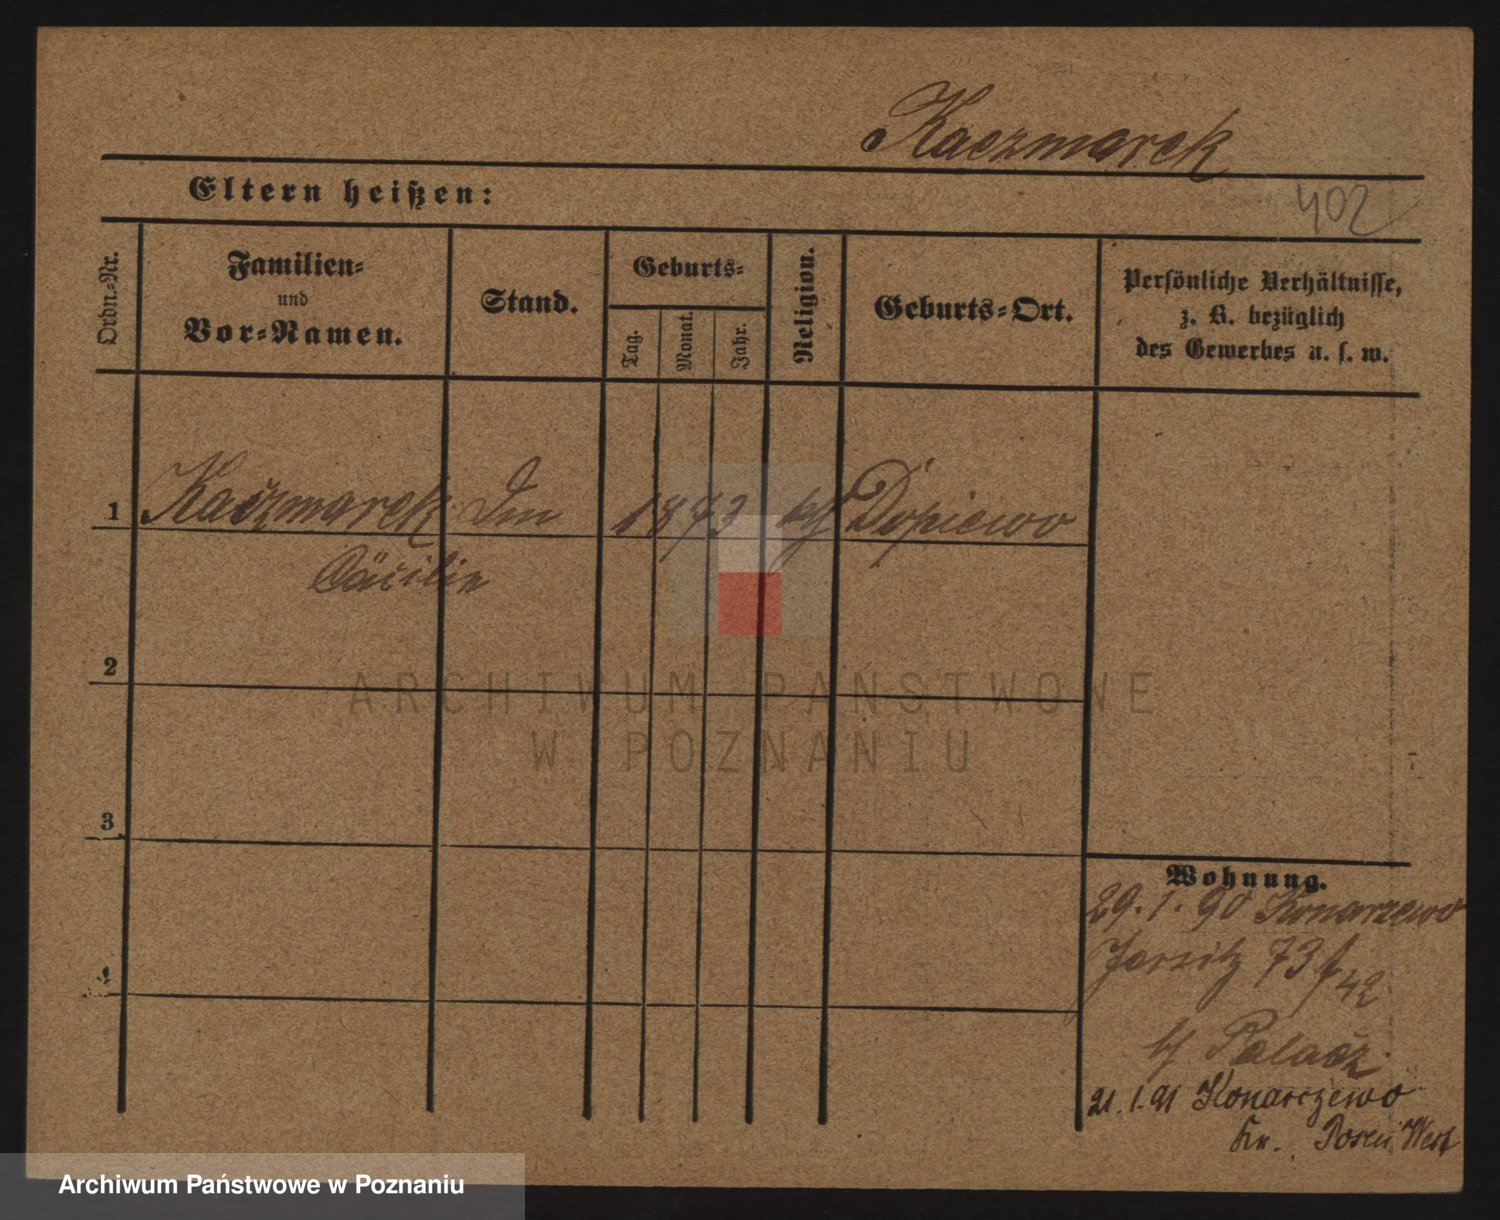 Kaczmarek
Eltern heißen:
402
Ordn.-Nr.
Familien-
und
Vor-Namen.
Stand.
Geburts-
Tag.
Monat.
Jahr.
Religion.
Geburts-Ort.
Persönliche Verhältnisse,
z. B. bezüglich
des Gewerbes u. s. w.
1 Kaczmarek 1873 Dopiewo
Cäcilie
2
3
4
Wohnung.
29.1.90 Konarzewo
Jersitz 73
42
Palacz
21.1.91 Konarzewo
Kr. Posen West
ARCHIWUM PAŃSTWOWE
W POZNANIU
Archiwum Państwowe w Poznaniu